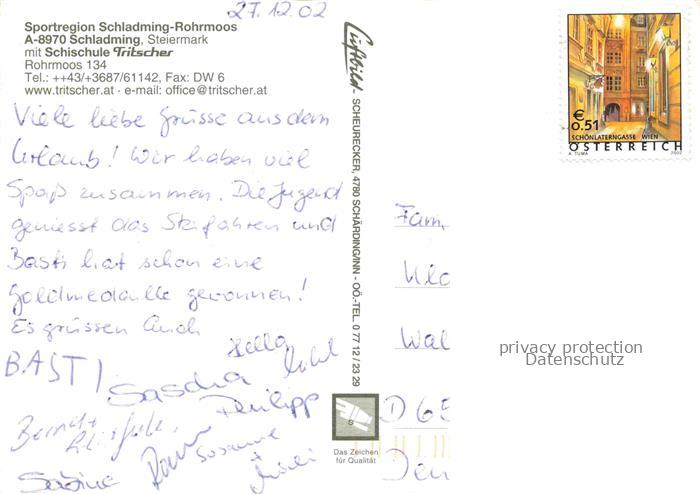 27.12.02
Sportregion Schladming-Rohrmoos
A-8970 Schladming, Steiermark
mit Schischule Tritscher
Rohrmoos 134
Tel.: ++43/+3687/61142, Fax: DW 6
www.tritscher.at · e-mail: office@tritscher.at
Viele liebe Grüsse aus dem
Urlaub! Wir haben viel
Spaß zusammen. Die Jugend
geniesst das Skifahren und
Basti hat schon eine
Goldmedaille gewonnen!
Es grüssen Euch
Hella
BASTI
Sascha
Philipp
Susanne
+
Sabine
Luftbild-SCHEURECKER, 4780 SCHÄRDING/INN - OÖ.-TEL. 0 77 12 / 23 29
Das Zeichen
für Qualität
€
0.51
SCHÖNLATERNGASSE WIEN
ÖSTERREICH
A. TUMA 2002
Fam.
Wal
D 65
privacy protection
Datenschutz